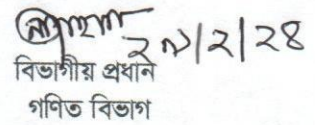 ২৯/২/২৪
বিভাগীয় প্রধান
গণিত বিভাগ